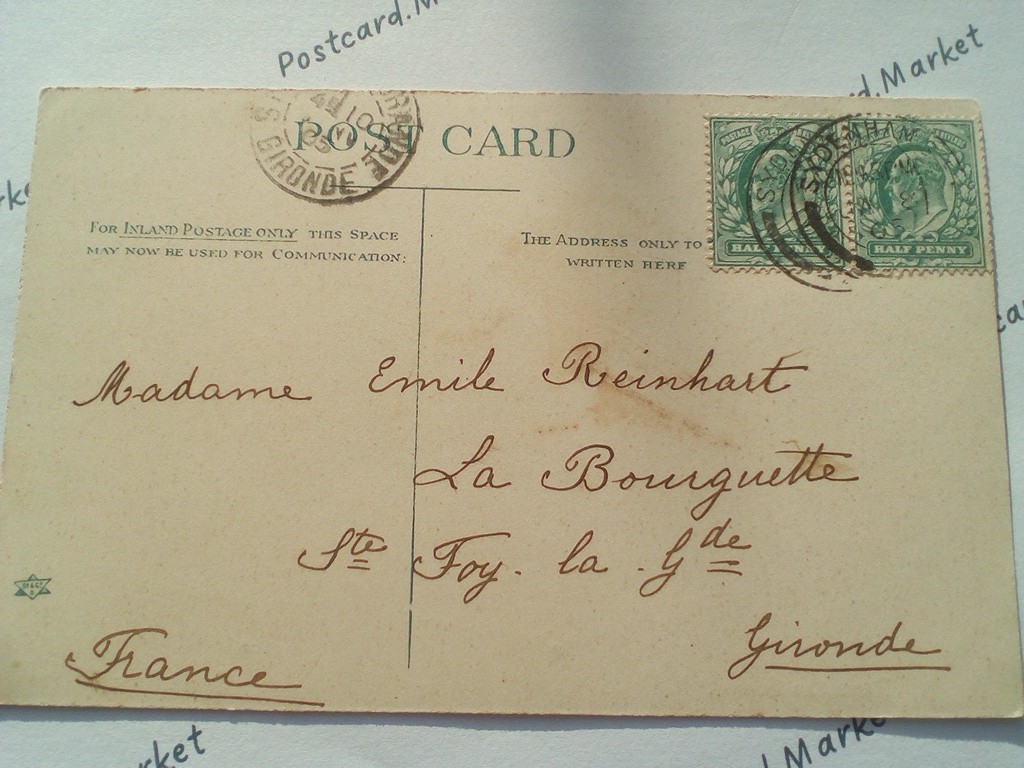 Postcard.M
d.Market
POST CARD
GIRONDE
FOR INLAND POSTAGE ONLY THIS SPACE
MAY NOW BE USED FOR COMMUNICATION:
THE ADDRESS ONLY TO
WRITTEN HERE
SYDENHAM
HALF PENNY
HALF PENNY
Madame Emile Reinhart
La Bourguette
Ste Foy. la. Gde
Gironde
France
rket
.Market